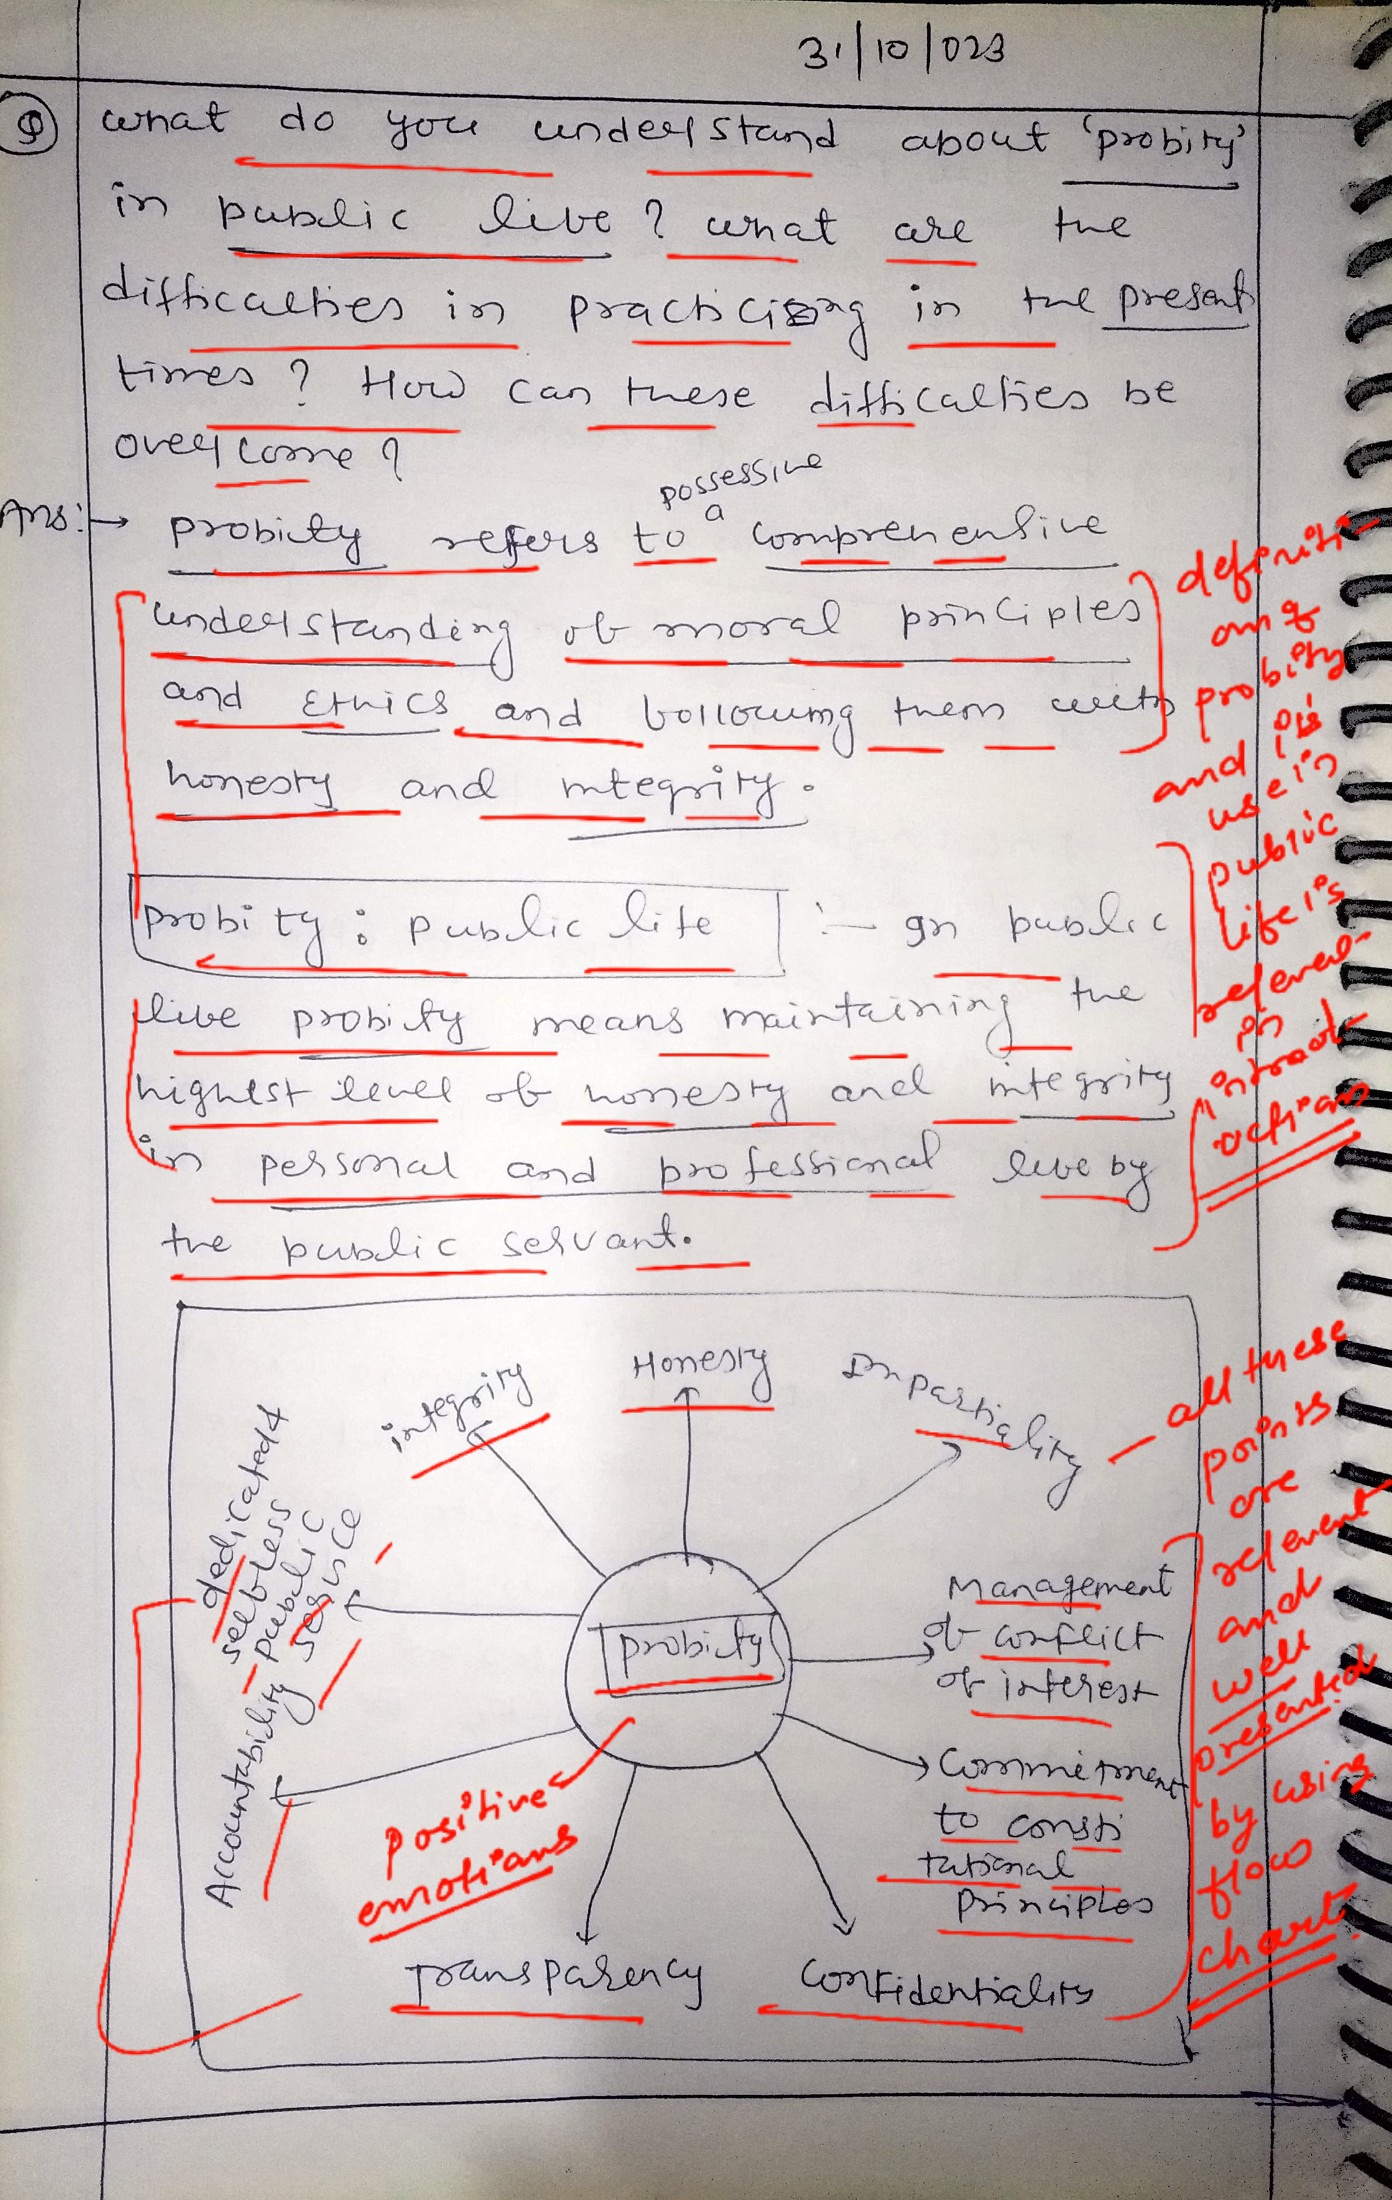 31/10/023
Q what do you understand about 'probity'
in public live ? what are the
difficulties in practicing in the present
times ? How can these difficulties be
overcome ?
possessive
Ans:→ probity refers to a comprehensive
understanding of moral principles
and Ethics and following them with
honesty and integrity.
definiti-
on of
probity
and it's
use in
public
life is
relevent
in
introd-
uction
probity : public life :- In public
live probity means maintaining the
highest level of honesty and integrity
in personal and professional live by
the public servant.
integrity
Honesty
Impartiality
dedicated &
selfless
public
service
probity
Management
of conflict
of interest
Accountability
Commitment
to consti
tutional
principles
Transparency
Confidentiality
positive
emotions
- all these
points
are
relevent
and
well
presented
by using
flow
chart.